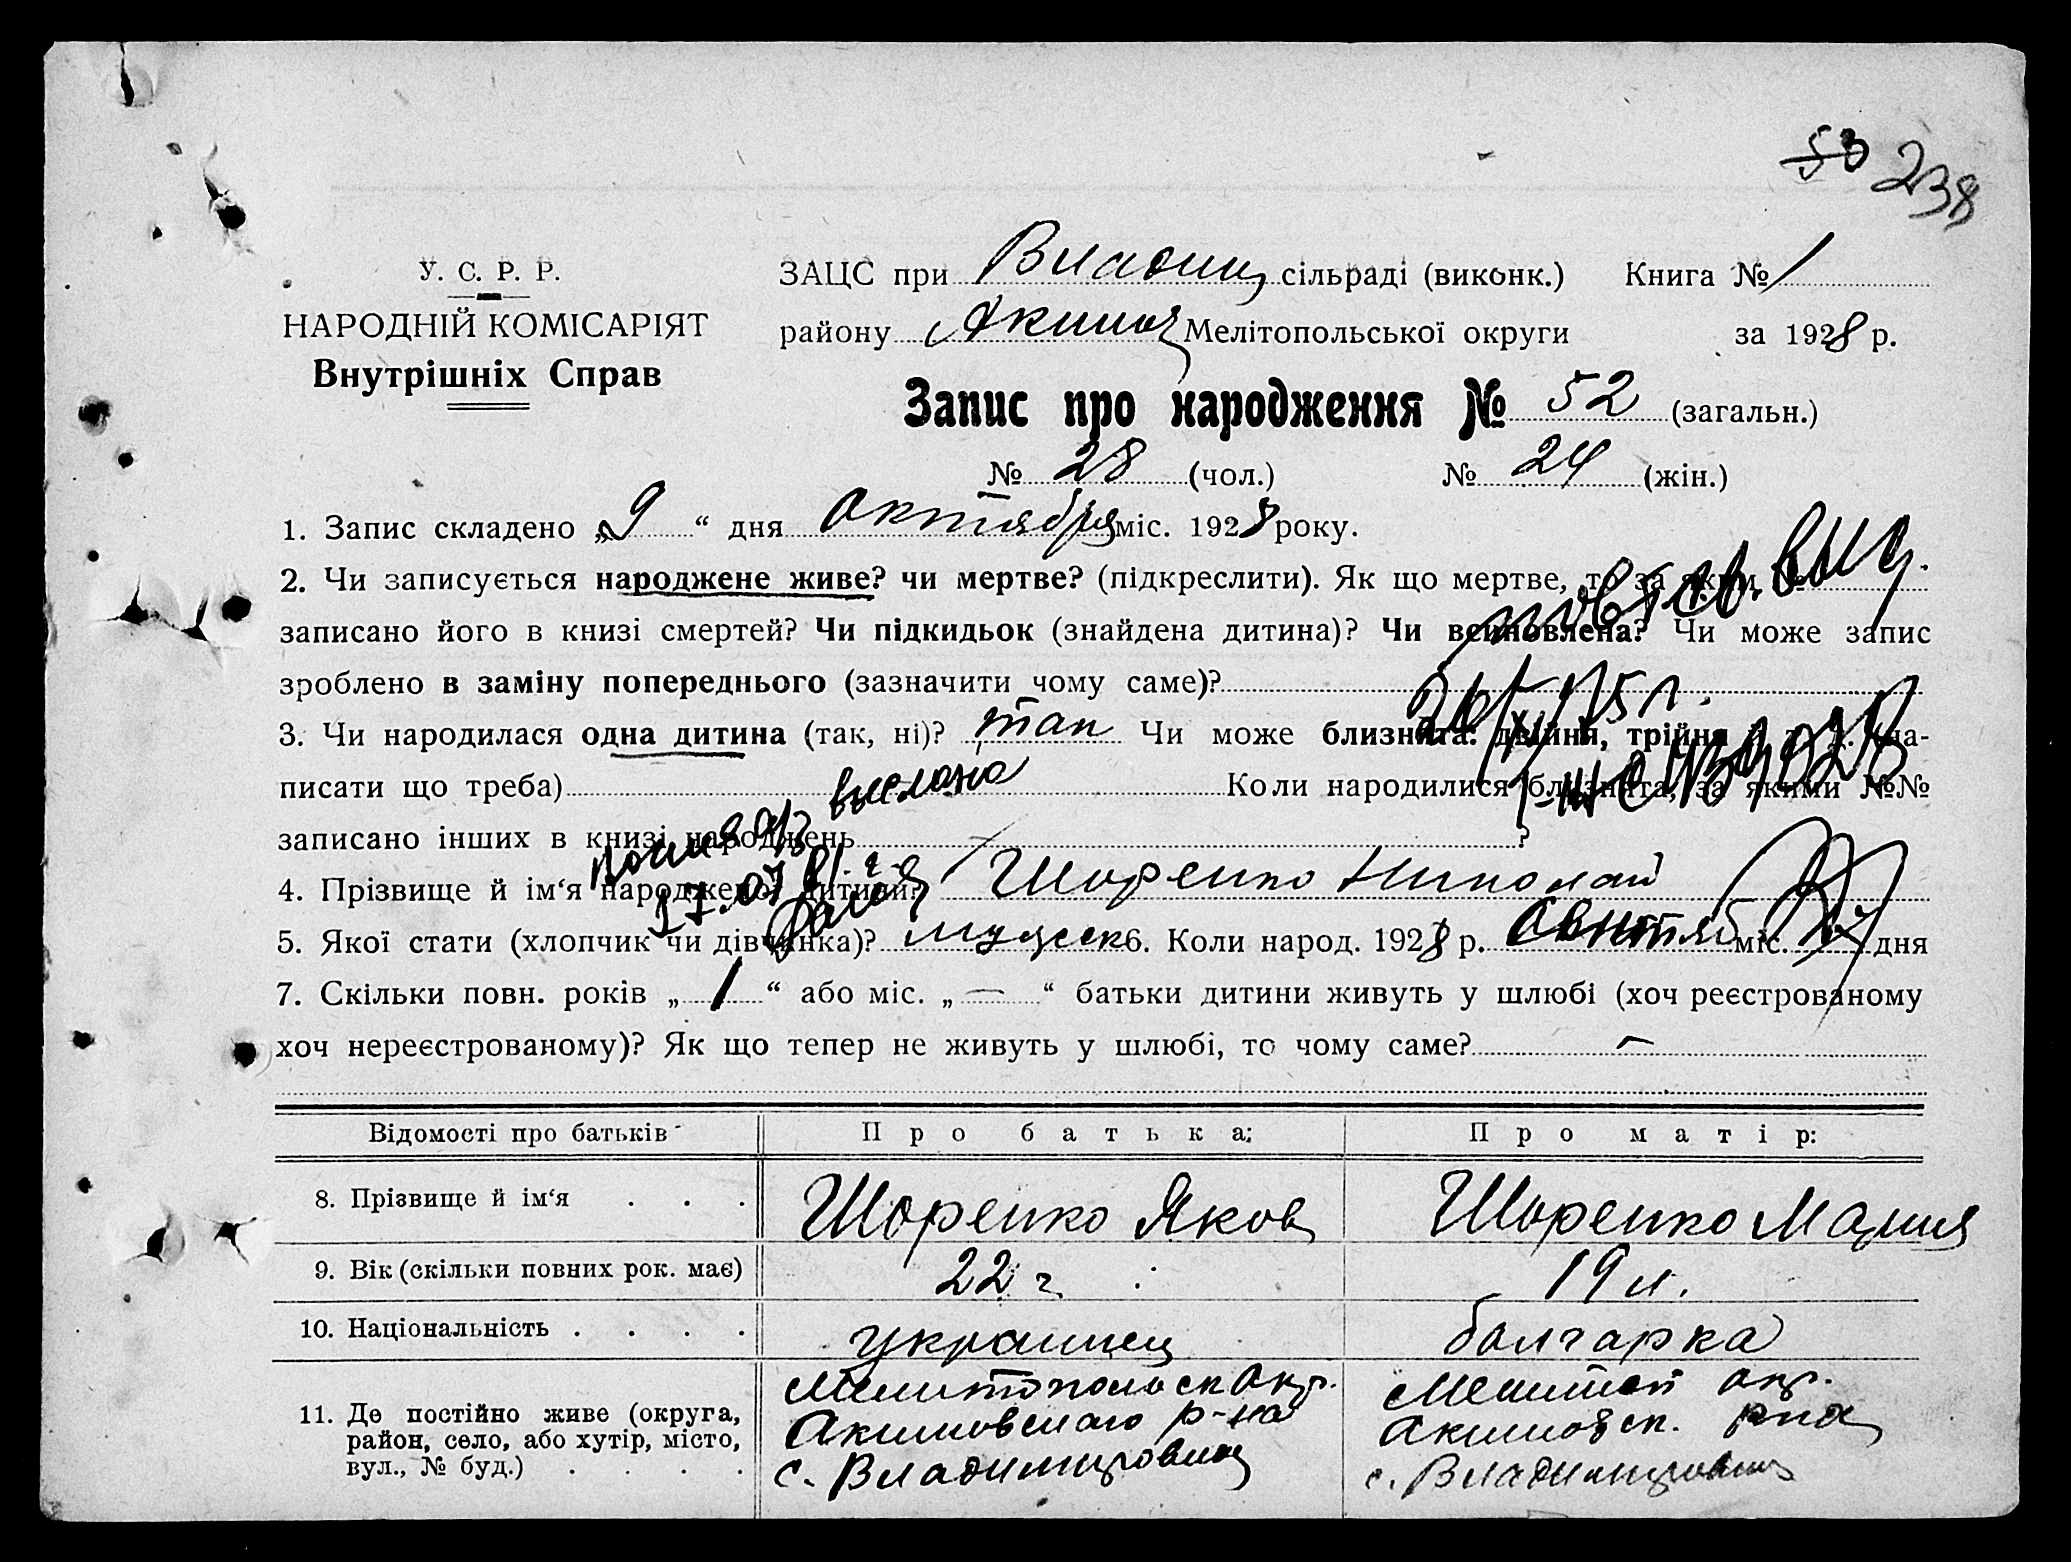 53 238
У. С. Р. Р.
НАРОДНІЙ КОМІСАРІЯТ
Внутрішніх Справ
ЗАЦС при Владим сільраді (виконк.) Книга № 1
району Акимов Мелітопольської округи за 1928 р.
Запис про народження № 52 (загальн.)
№ 28 (чол.) № 24 (жін.)
1. Запис складено „9“ дня октября міс. 1928 року.
2. Чи записується народжене живе? чи мертве? (підкреслити). Як що мертве, то за яким №
повт. св. выд.
записано його в книзі смертей? Чи підкидьок (знайдена дитина)? Чи всиновлена? Чи може запис
зроблено в заміну попереднього (зазначити чому саме)?
3. Чи народилася одна дитина (так, ні)? так Чи може близнята: двійня, трійня і т. д. (на-
писати що треба) Коли народилися близнята, за якими №№
выслано
записано інших в книзі народжень ?
4. Прізвище й ім‘я народженої дитини? Шоренко Николай
5. Якої стати (хлопчик чи дівчинка)? мужск 6. Коли народ. 1928 р. міс. дня
7. Скільки повн. років „1“ або міс. „—“ батьки дитини живуть у шлюбі (хоч реєстрованому
хоч нереєстрованому)? Як що тепер не живуть у шлюбі, то чому саме? —
Відомості про батьків Про батька: Про матір:
8. Прізвище й ім‘я . . . Шоренко Яков Шоренко Мария
9. Вік (скільки повних рок. має) 22 г. 19 л.
10. Національність . . . . украинец болгарка
11. Де постійно живе (округа, район, село, або хутір, місто, вул., № буд.) . . . .
Мелитопольск окр.
Акимовского р-на
с. Владимировка
Мелитоп окр.
Акимовск. рна
с. Владимировка